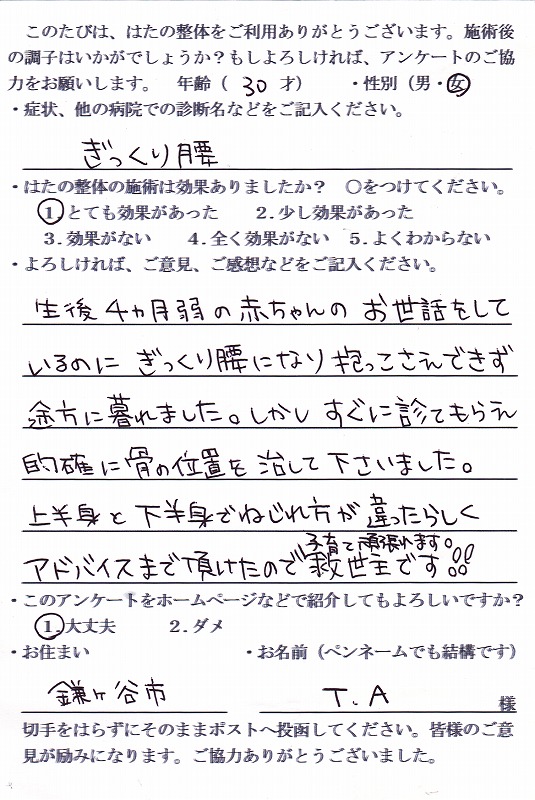 このたびは、はたの整体をご利用ありがとうございます。施術後
の調子はいかがでしょうか?もしよろしければ、アンケートのご協
力をお願いします。 年齢（ 30 才） ・性別（男・女）
・症状、他の病院での診断名などをご記入ください。
ぎっくり腰
・はたの整体の施術は効果ありましたか? ○をつけてください。
1.とても効果があった 2.少し効果があった
3.効果がない 4.全く効果がない 5.よくわからない
・よろしければ、ご意見、ご感想などをご記入ください。
生後4ヵ月弱の赤ちゃんの お世話をして
いるのに ぎっくり腰になり抱っこさえできず
途方に暮れました。しかし すぐに診てもらえ
的確に骨の位置を 治して下さいました。
上半身と 下半身でねじれ方が 違ったらしく
子育て頑張れます。
アドバイスまで頂けたので 救世主です!!
・このアンケートをホームページなどで紹介してもよろしいですか?
1.大丈夫 2.ダメ
・お住まい ・お名前（ペンネームでも結構です）
鎌ヶ谷市 T.A 様
切手をはらずにそのままポストへ投函してください。皆様のご意
見が励みになります。ご協力ありがとうございました。